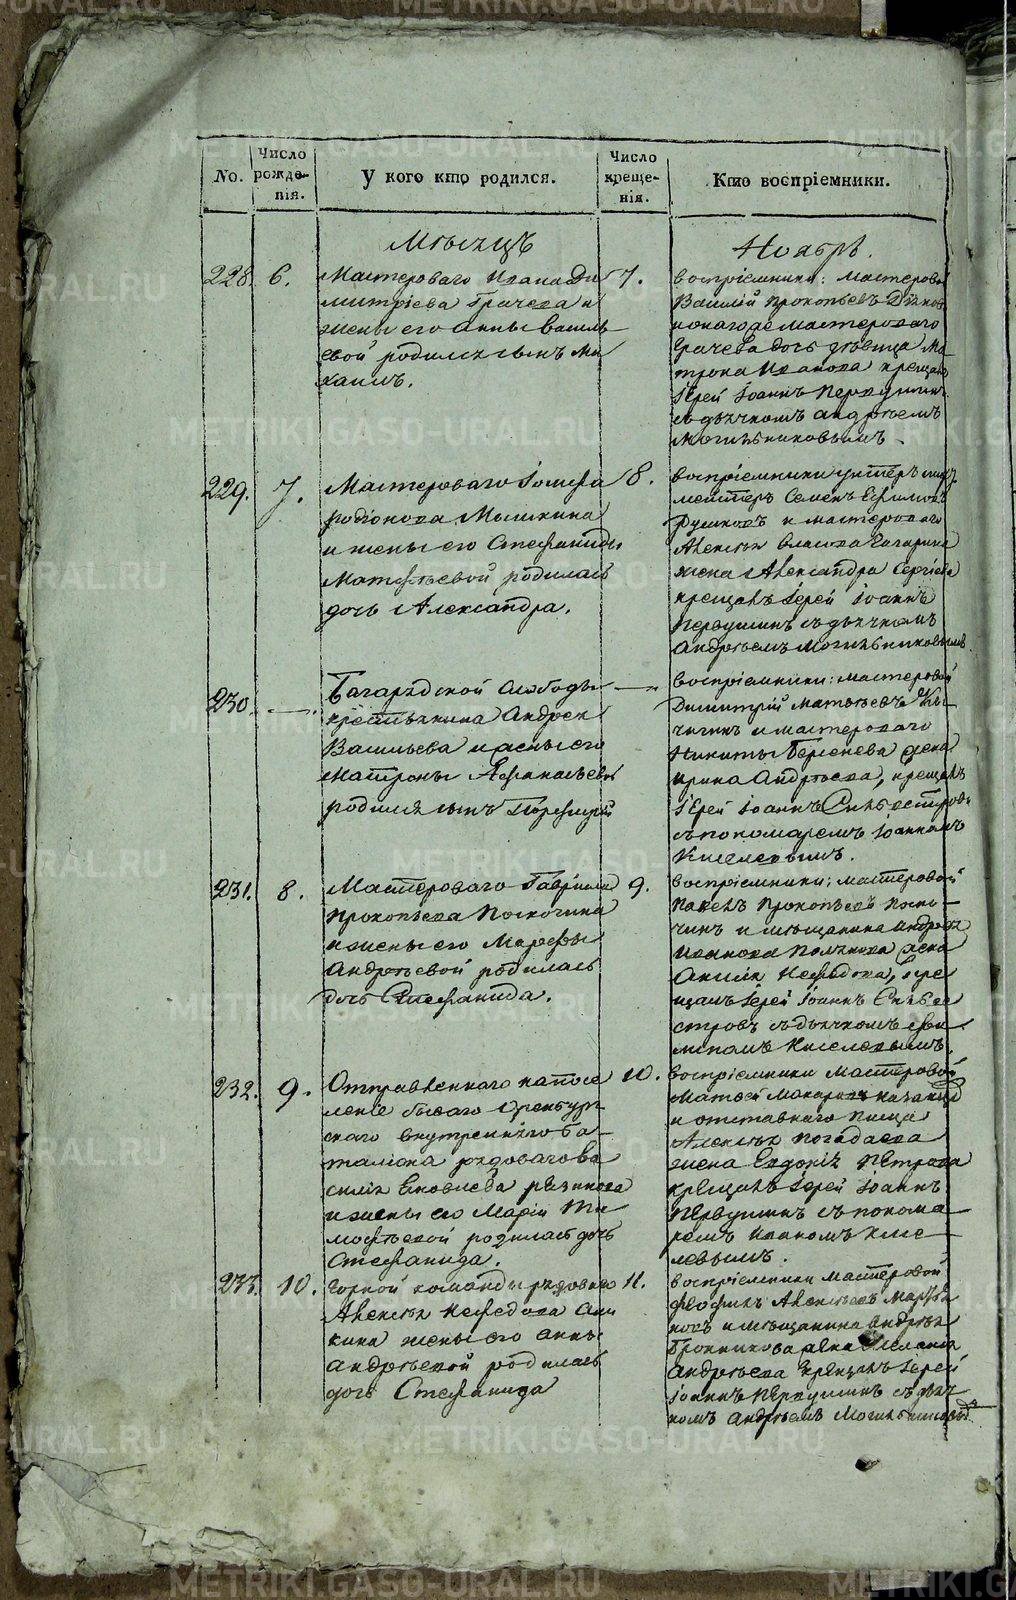 METRIKI.GASO-URAL.RU
No.
Число рожде-нія.
У кого кто родился.
Число креще-нія.
Кто воспріемники.
Мѣсяцъ
Ноябрь.
228. 6.
Мастероваго Ивана Ди
митріева Грачева и
жены его Анны Василь
евой родился сынъ Ми
хаилъ.
7.
воспріемники: мастеровой
Василій Прокопьевъ
мастероваго
Грачева дочь дѣвица Ма
трона Иванова крещалъ
Іерей Іоаннъ Первушинъ
съ дьячкомъ Андреемъ
Могильниковымъ.
229. 7.
Мастероваго Іосифа
Родіонова Мышкина
и жены его Стефаниды
Матфѣевой родилась
дочь Александра.
8.
воспріемники унтеръ
мейстеръ Семенъ Ефимовъ
и мастероваго
Алексѣя Власова Гагарина
жена Александра Сергіева
крещалъ Іерей Іоаннъ
Первушинъ съ дьячкомъ
Андреемъ Могильниковымъ
230. —.
Багарядской Слободы
крестьянина Андрея
Васильева и жены его
Матроны Афанасьевой
родился сынъ Порфирій
—
воспріемники: мастеровой
Димитрій Матвѣевъ
и мастероваго
Никиты Берсенева жена
Ирина Андреева, крещалъ
Іерей Іоаннъ Сильвестровъ
съ пономаремъ Іоанномъ
Киселевымъ.
231. 8.
Мастероваго Гавріила
Прокопьева Поскочина
и жены его Марфы
Андреевой родилась
дочь Стефанида.
9.
воспріемники: мастеровой
Павелъ Прокопьевъ Поско-
чинъ и мѣщанина Андрея
Иванова Полякова жена
Анисія Нефедова, кре
щалъ Іерей Іоаннъ Сильве
стровъ съ дьячкомъ Фи
липомъ Киселевымъ.
232. 9.
Отправленнаго на посе
леніе бывшаго Оренбург
скаго внутренняго ба-
таліона рядоваго Ва
силія Яковлева Рѣзинова
и жены его Маріи Ти
мофѣевой родилась дочь
Стефанида.
10.
воспріемники мастеровой
Матвей Макаровъ
и отставнаго писца
Алексѣя Погадаева
жена Евдокія Петрова
крещалъ Іерей Іоаннъ
Первушинъ съ понома
ремъ Иваномъ Кисе-
левымъ.
233. 10.
Горной команды рядоваго
Алексѣя Нефедова Ани
кина жены его Анны
Андреевой родилась
дочь Стефанида
11.
воспріемники мастеровой
Феофилъ Алексѣевъ
и мѣщанина Андрея
Бронникова жена Меланія
Андреева крещалъ Іерей
Іоаннъ Первушинъ съ дьяч
комъ Андреемъ Могильниковымъ